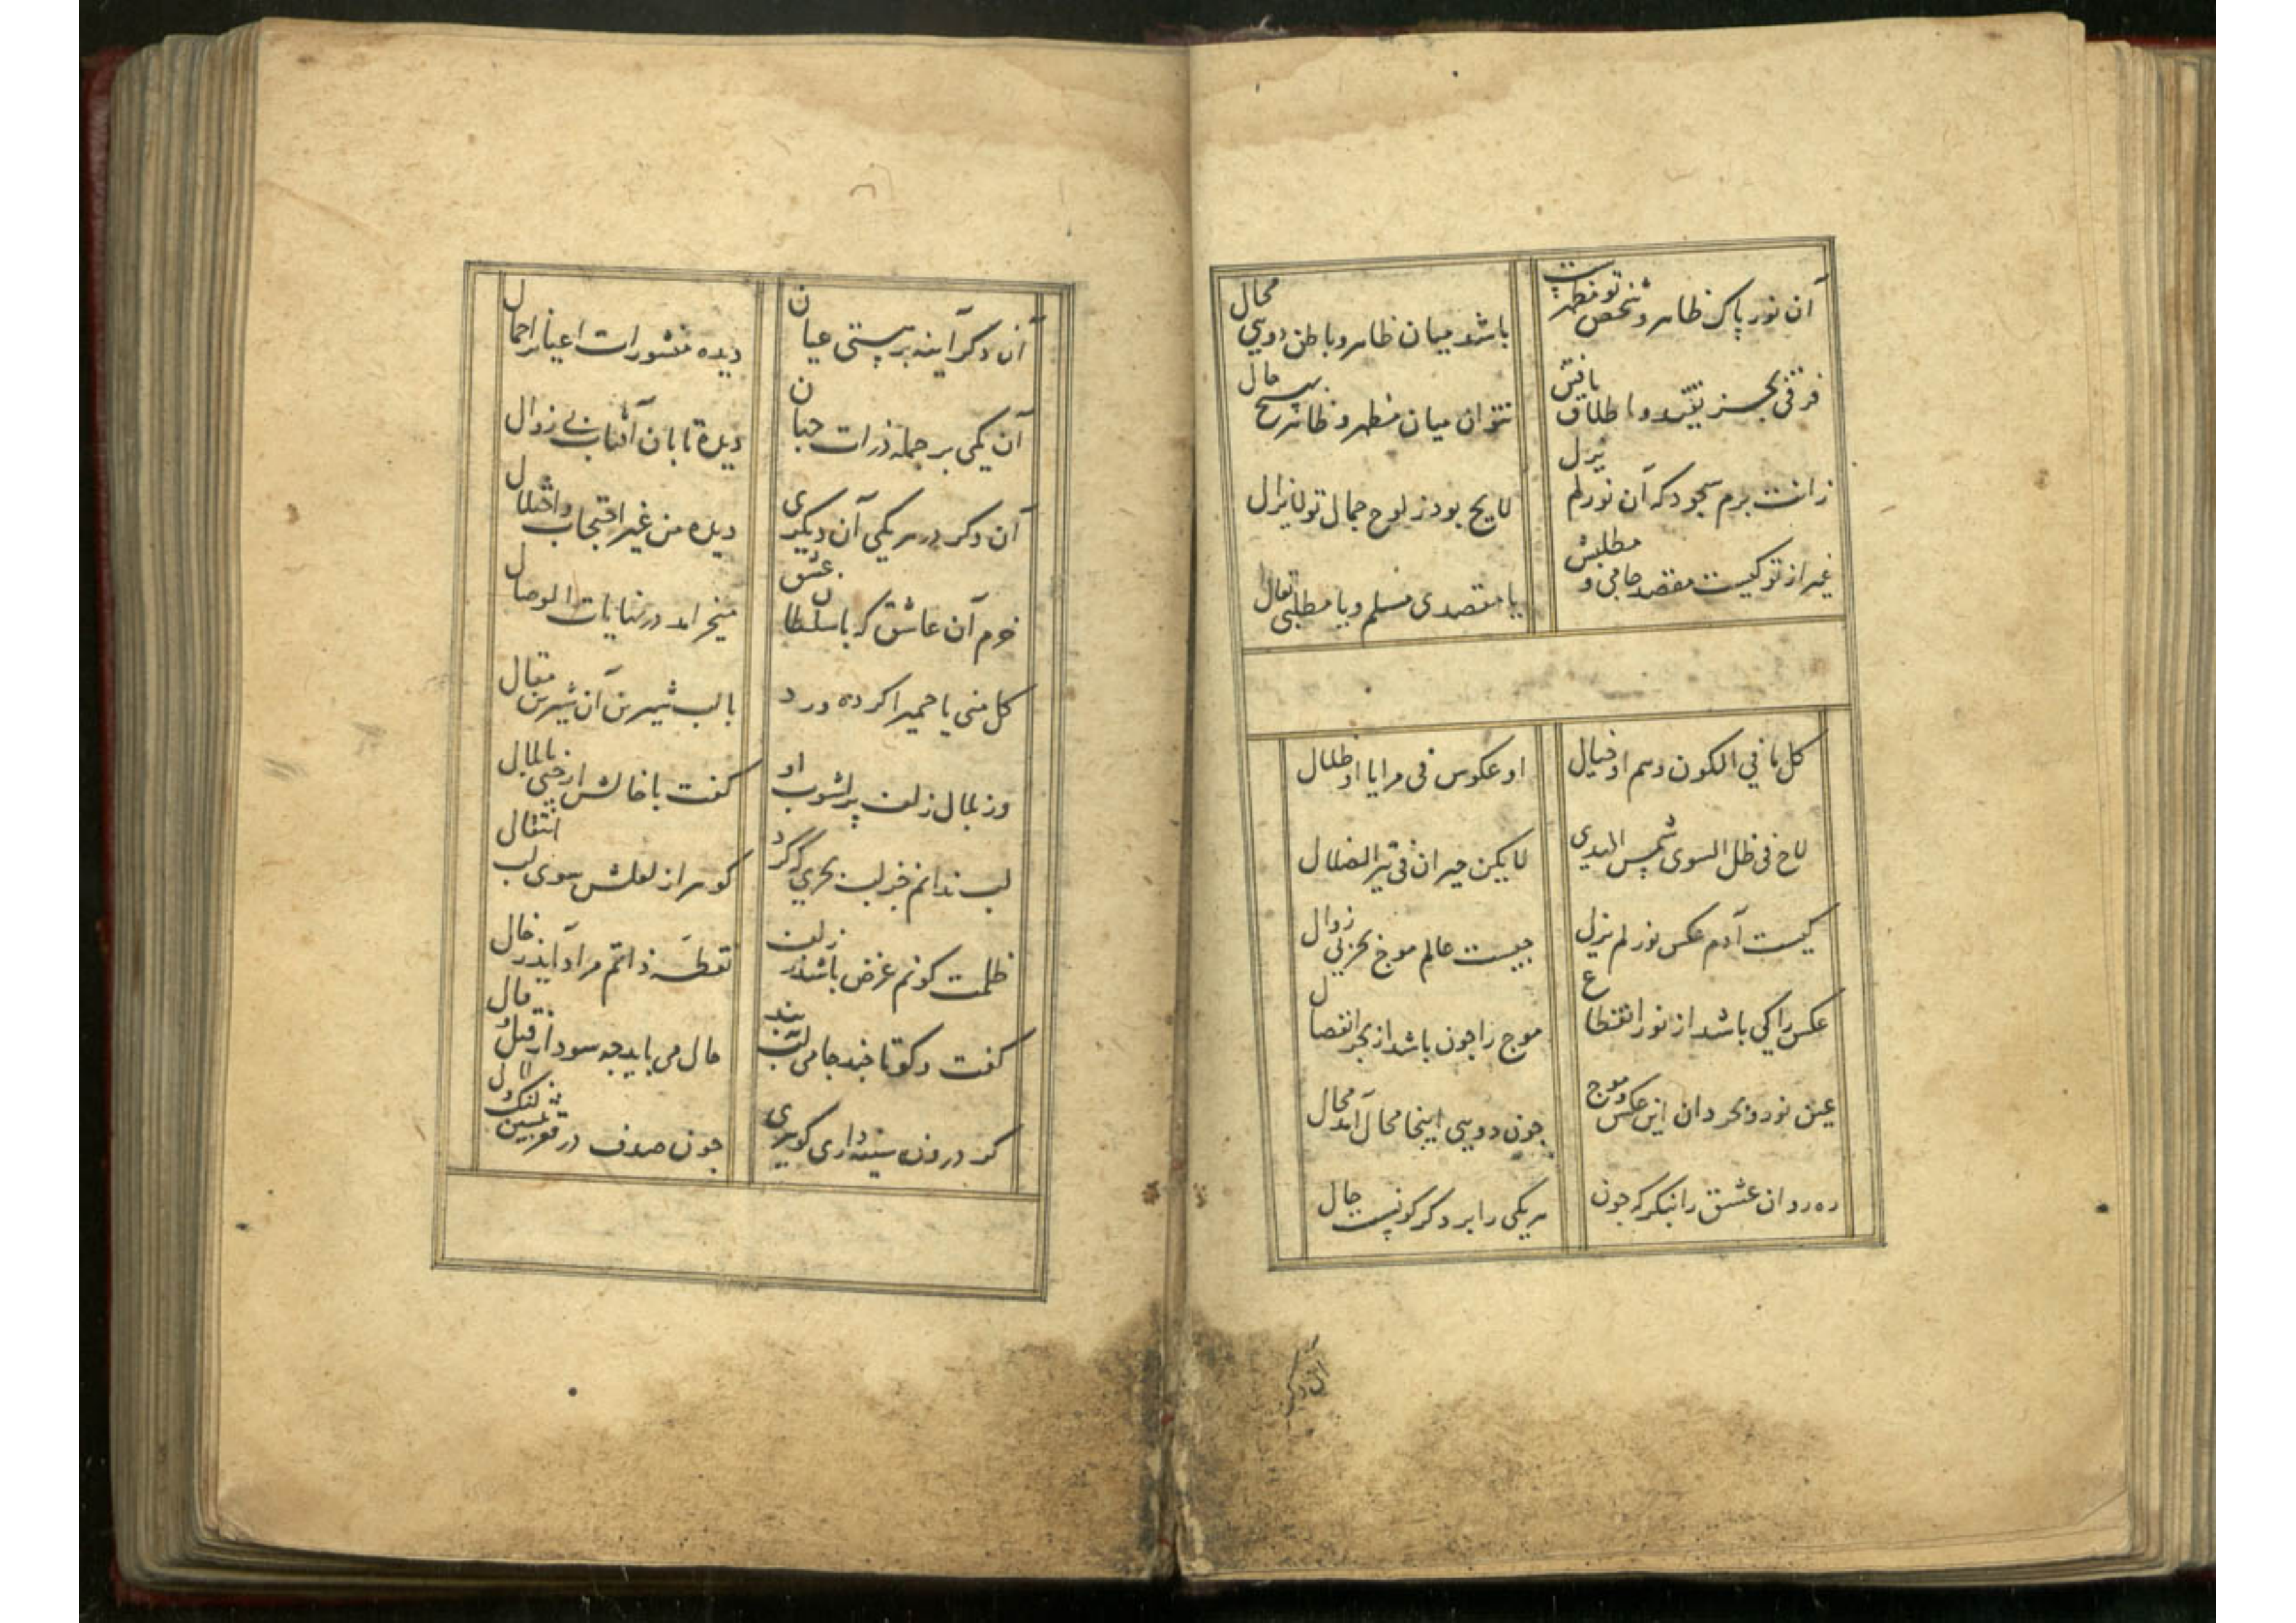 آن نور پاک ظاهر و شخص تو مظهرست
باشد میان ظاهر و باطن دویی محال
فرقی بجز تقید و اطلاق یافتن
نتوان میان مظهر و ظاهر بهیچ حال
زانت برم سجود که آن نور لم یزل
لایح بود ز لوح جمال تو لایزال
غیر از تو کیست مقصد جامی و مطلبش
یا مقصدی هلم و یا مطلبی تعال
کل ما فی الکون وهم او خیال
او عکوس فی مرایا او ظلال
لاح فی ظل السوی شمس الهدی
لا یکن حیران فی تیه الضلال
کیست آدم عکس نور لم یزل
چیست عالم موج بحر بی زوال
عکس را کی باشد از نور انقطاع
موج را چون باشد از بحر انفصال
عین نور و بحر دان این عکس و موج
چون دویی اینجا محال آمد محال
ره روان عشق را بنگر که چون
هریکی را بر دگر گونیست حال
آن دگر
آن دگر آینه هستی عیان
دیده منشورات اعیان را جمال
آن یکی بر جمله ذرات جهان
دیده تابان آفتاب بی زوال
آن دگر در هر یکی آن دیگری
دیده من غیر احتجاب واختلال
خرم آن عاشق که با سلطان عشق
میخرامد در نهایات الوصال
کلمنی یا حمیرا کرده ورد
با لب شیرین آن شیرین مقال
وز بلال زلف پر آشوب او
گفت با خالش ارحنی یا بلال
لب ندانم جز لب بحری که کرد
گوهر از لعلش سوی لب انتقال
ظلمت کونم غرض باشد ز زلف
نقطه ذاتم مراد آید ز خال
گفت و گو تا چند جامی لب ببند
حال می باید چه سود از قیل و قال
گر درون سینه داری گوهری
چون صدف در قعر بنشین گنگ و لال